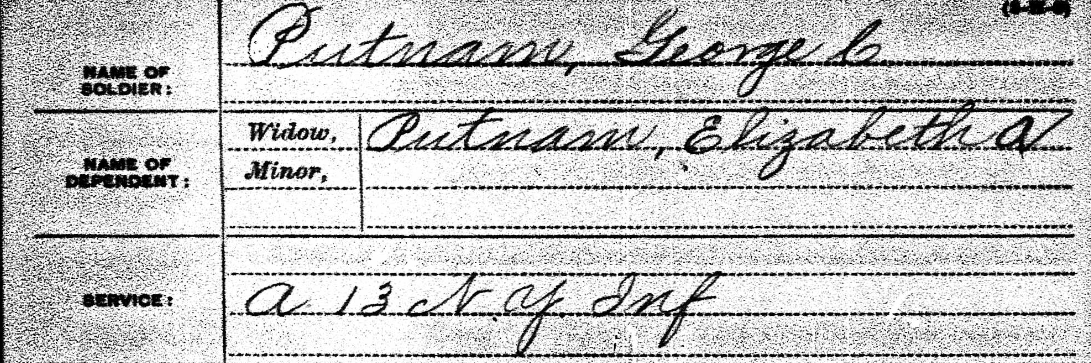 NAME OF
SOLDIER:
Putnam, George C
NAME OF
DEPENDENT:
Widow, Putnam, Elizabeth A
Minor,
SERVICE:
A 13 N.Y. Inf